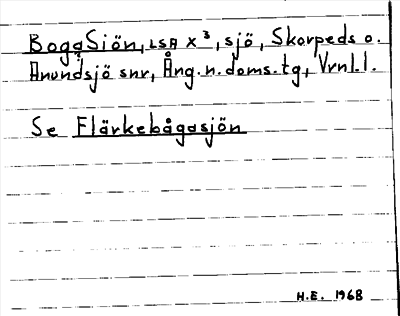 BogaSiön, LSA X³, sjö, Skorpeds o.
Anundsjö snr, Ång. n. doms. tg, Vrnl. l.
Se Flärkebågasjön
H.E. 1968